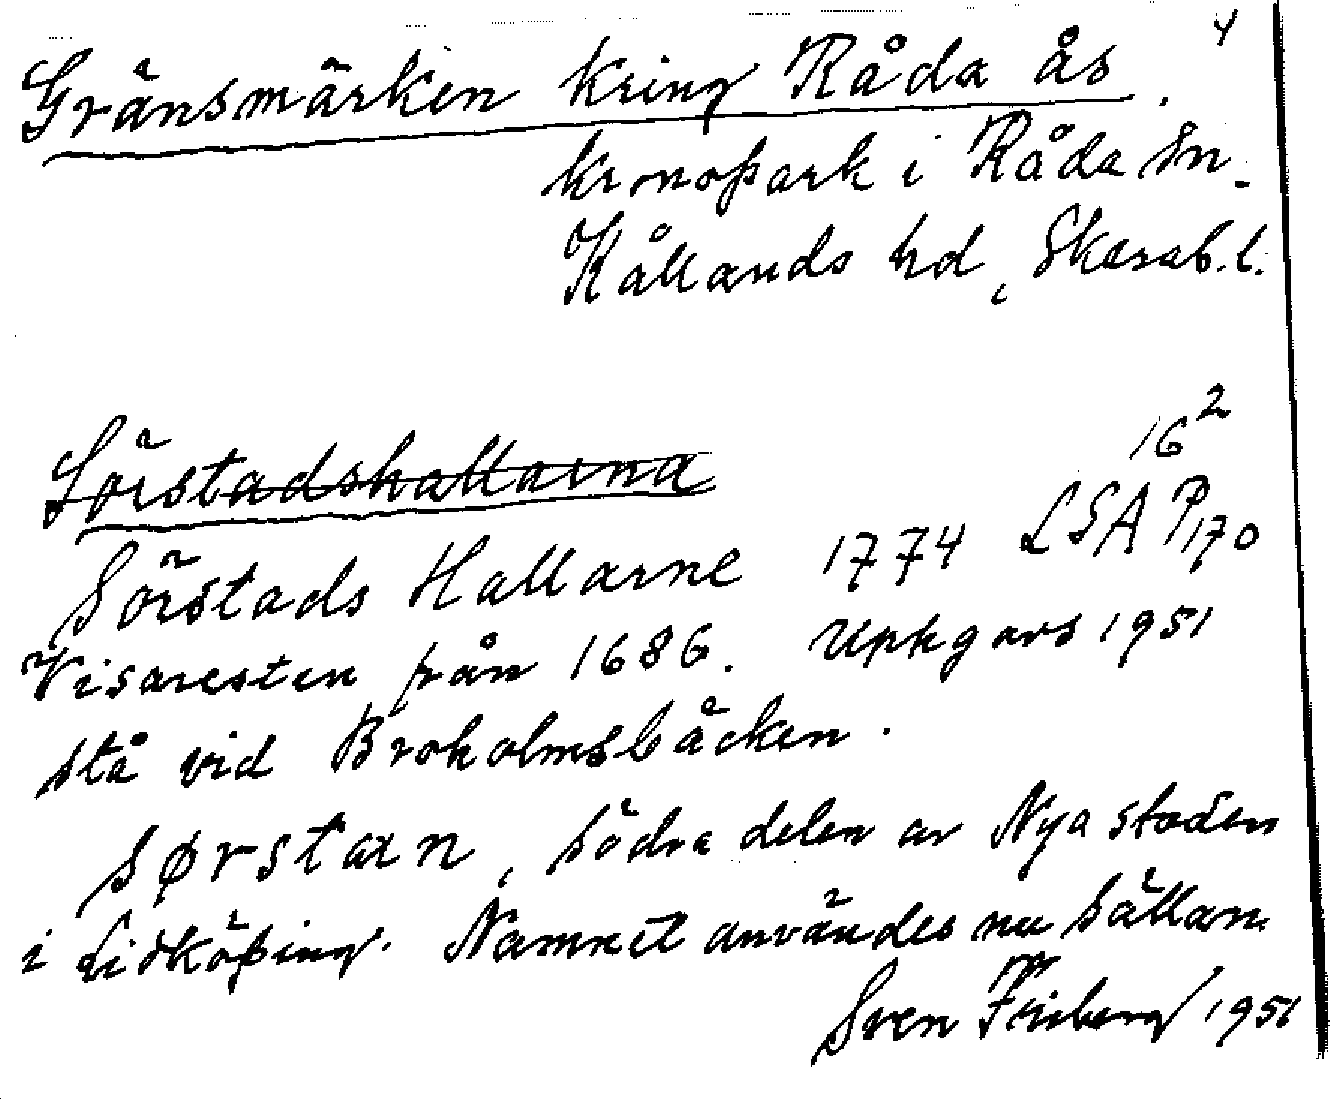 4
Gränsmärken kring Råda ås.
kronopark i Råda sn.
Kållands hd, Skarab.l.
16²
Sörstadshallarna
Sörstads Hallarne 1774 LSA P170
Visaresten från 1686. Uppgavs 1951
stå vid Broholmsbäcken.
sørstan, södra delen av Nya staden
i Lidköping. Namnet användes nu sällan.
Sven Friberg 1951